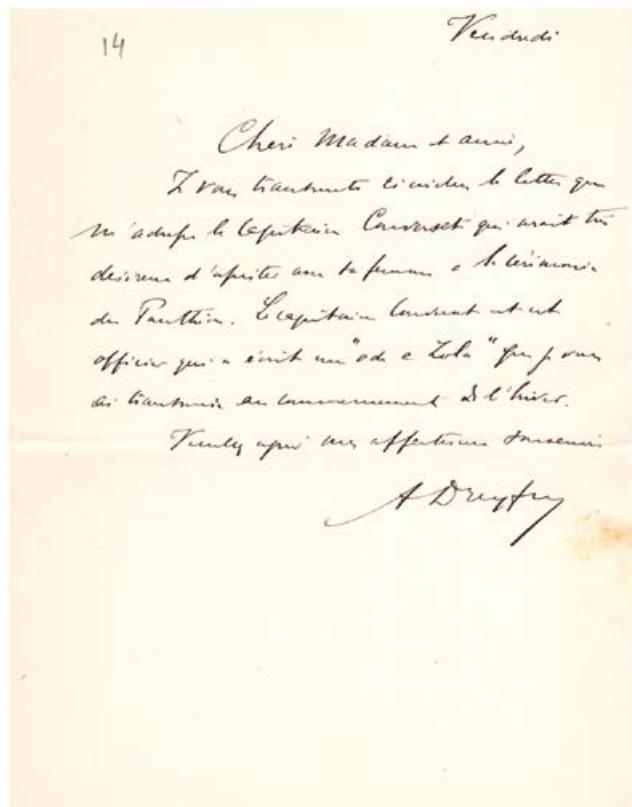 14
Vendredi
Chère Madame et amie,
Je vous transmets ci-inclus la lettre que
m'adresse le capitaine Converset qui serait très
désireux d'assister avec sa femme à la cérémonie
du Panthéon. Le capitaine Converset est cet
officier qui a écrit une "ode à Zola" que je vous
ai transmise au commencement de l'hiver.
Veuillez agréer mes affectueux souvenirs
A Dreyfus